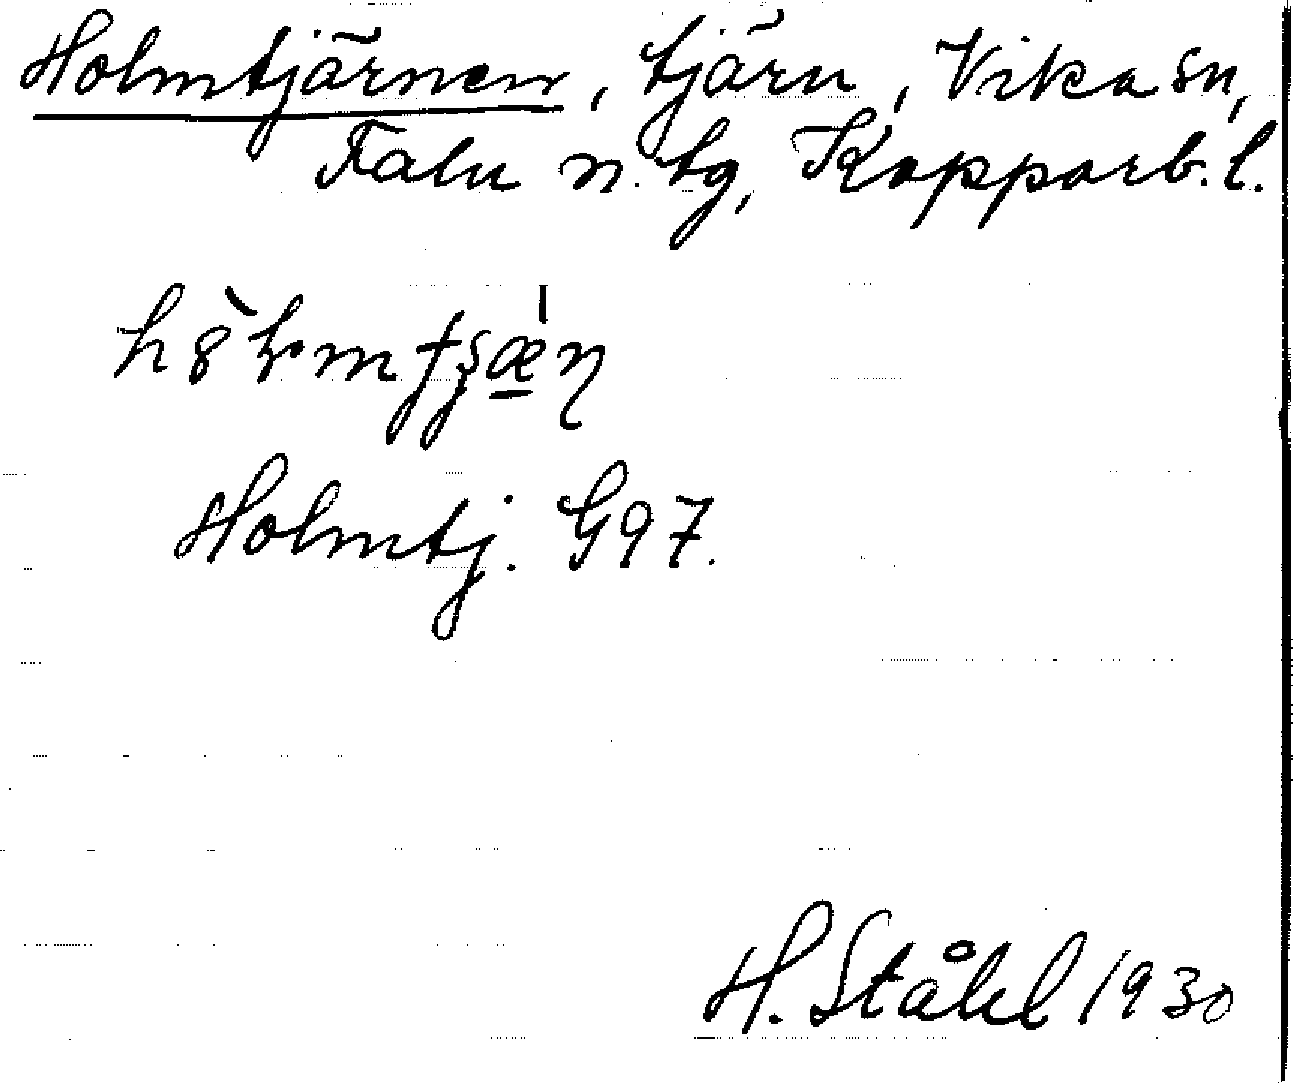 Holmtjärnen, tjärn, Vika sn,
Falu n. tg, Kopparb. l.
Holmtj. G97.
H. Ståhl 1930